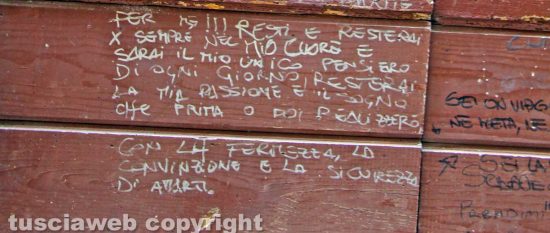 PER TE!!! RESTI E RESTERAI
X SEMPRE NEL MIO CUORE E
SARAI IL MIO UNICO PENSIERO
DI OGNI GIORNO, RESTERAI
LA MIA PASSIONE E IL SOGNO
CHE PRIMA O POI REALIZZERÒ
CON LA FERMEZZA, LA
CONVINZIONE E LA SICUREZZA
DI AMARTI.
SEI UN VIAG
NE META, NE
SEI LA
tusciaweb copyright